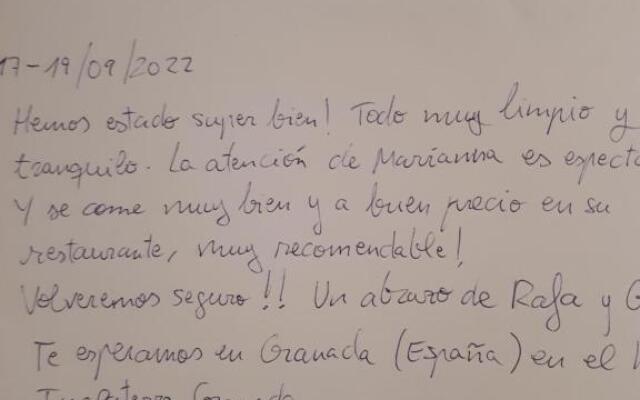 17-19/09/2022
Hemos estado super bien! Todo muy limpio y
tranquilo. La atención de Marianna es
Y se come muy bien y a buen precio en su
restaurante, muy recomendable!
Volveremos seguro!! Un abrazo de Rafa y
Te esperamos en Granada (España) en el